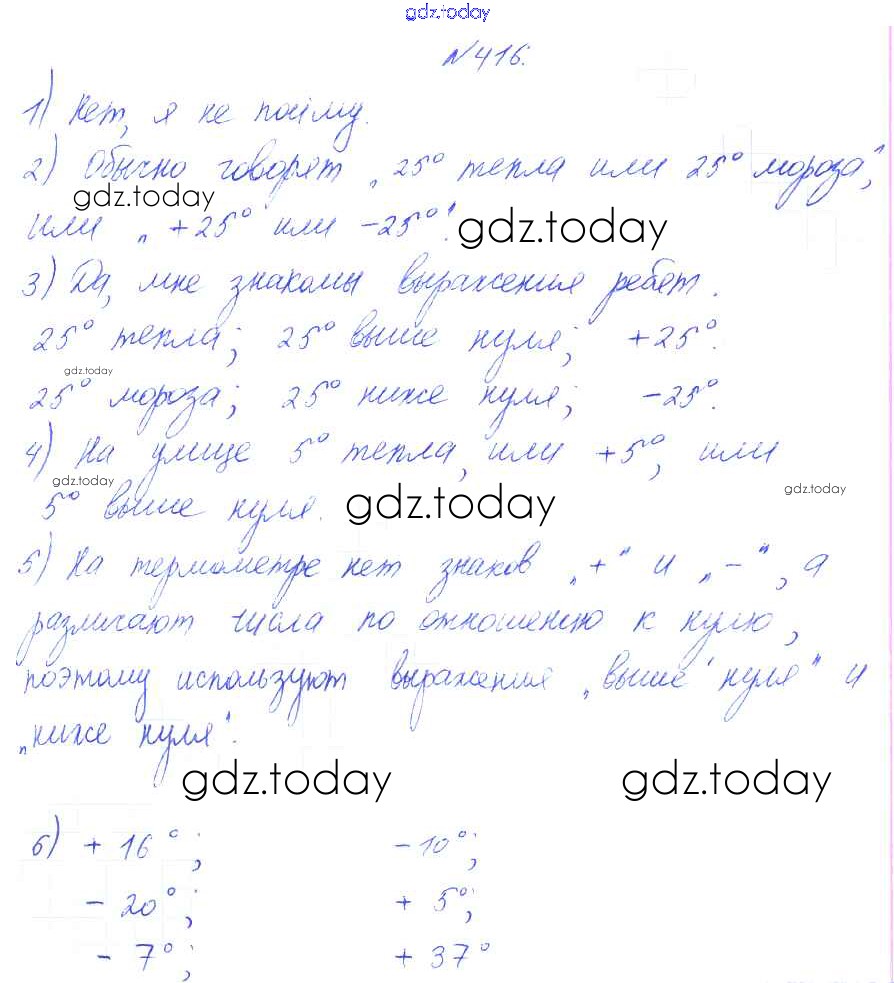 gdz.today
№416.
1) Нет, я не пойму.
2) Обычно говорят „25° тепла или 25° мороза“,
gdz.today
или „+25° или -25°“.
gdz.today
3) Да, мне знакомы выражения ребят.
25° тепла; 25° выше нуля; +25°.
gdz.today
25° мороза; 25° ниже нуля; -25°.
4) На улице 5° тепла, или +5°, или
gdz.today
gdz.today
5° выше нуля.
gdz.today
5) На термометре нет знаков „+“ и „-“, а
различают числа по отношению к нулю,
поэтому используют выражения „выше нуля“ и
„ниже нуля“.
gdz.today gdz.today
6) + 16°; - 10°;
- 20°; + 5°;
- 7°; + 37°